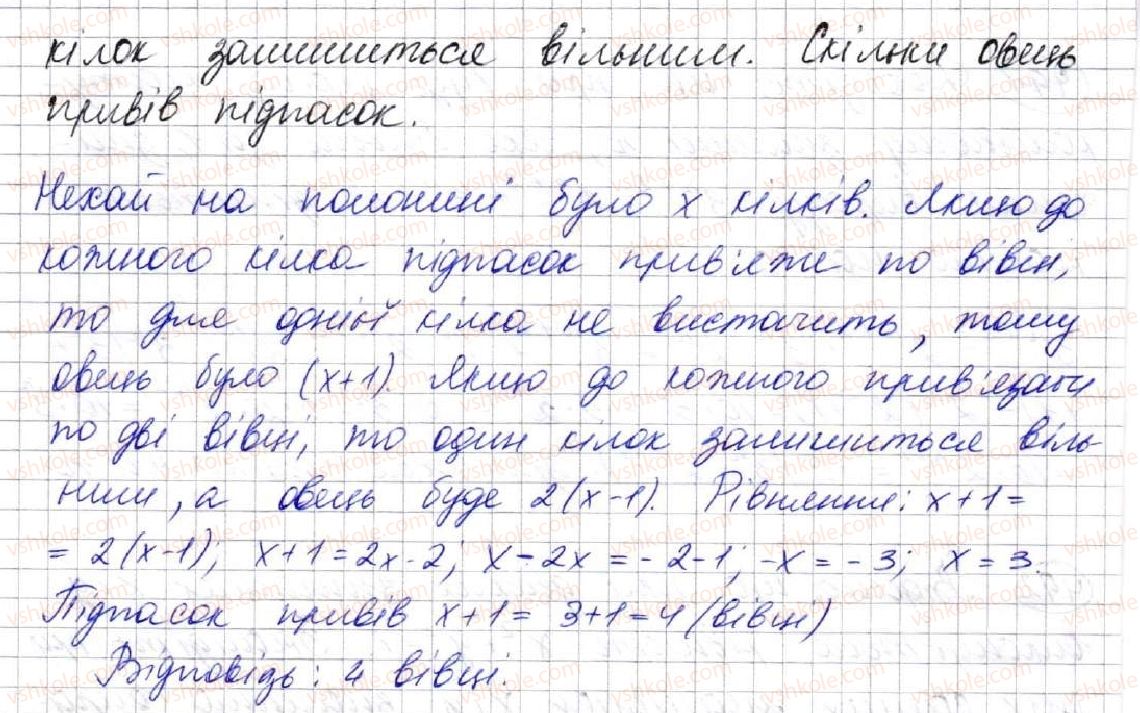 кілок залишиться вільним. Скільки овець
привів підпасок.
Нехай на полонині було x кілків. Якщо до
кожного кілка підпасок прив'яже по вівці,
то для однієї кілка не вистачить, тому
овець було (x+1). Якщо до кожного прив'язати
по дві вівці, то один кілок залишиться віль-
ним, а овець буде 2(x-1). Рівняння: x+1=
= 2(x-1); x+1=2x-2; x-2x=-2-1; -x=-3; x=3.
Підпасок привів x+1= 3+1=4 (вівці)
Відповідь: 4 вівці.